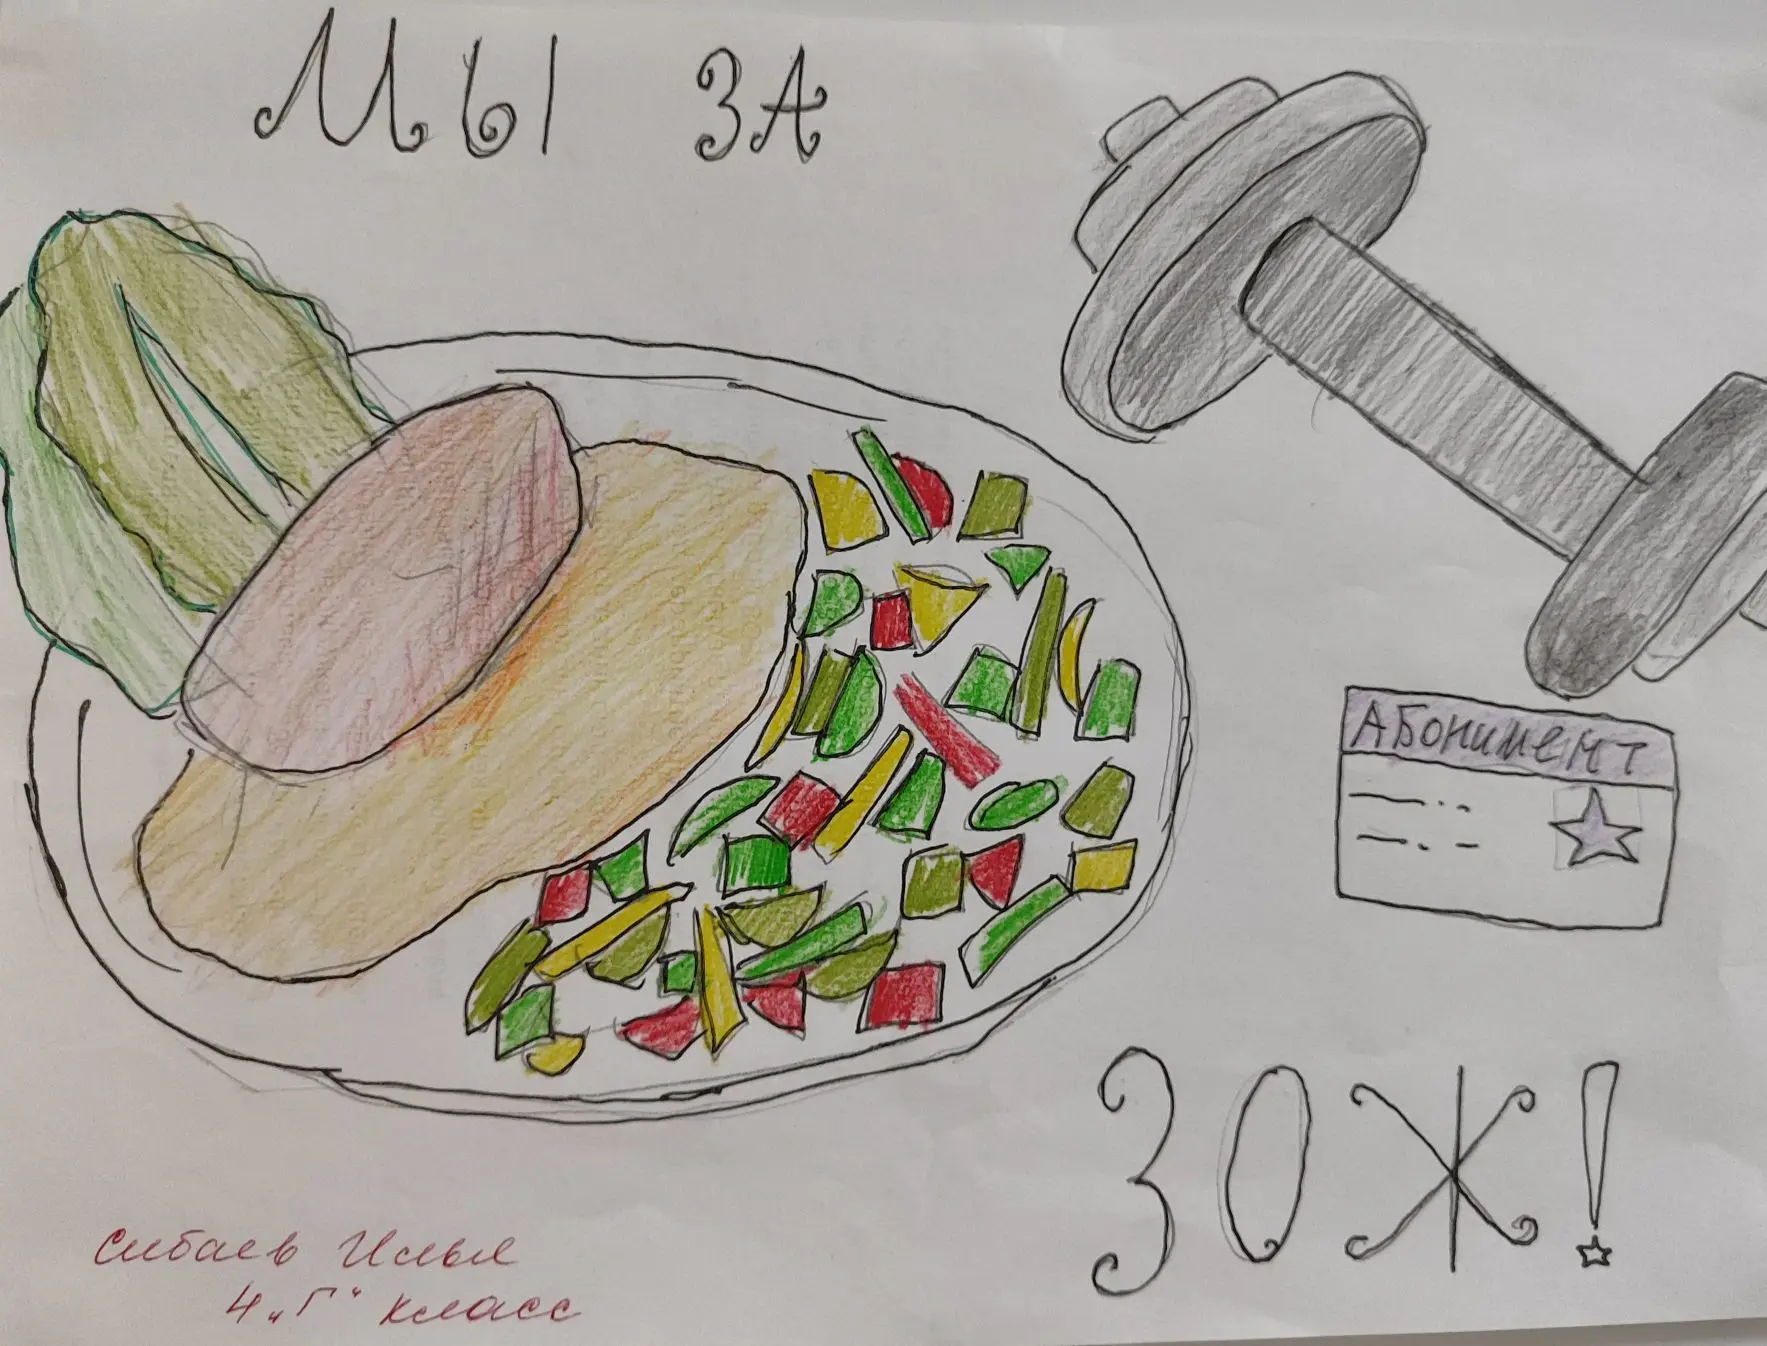 МЫ ЗА
АБОНИМЕНТ
ЗОЖ!
Сибаев Илья
4 „Г" класс